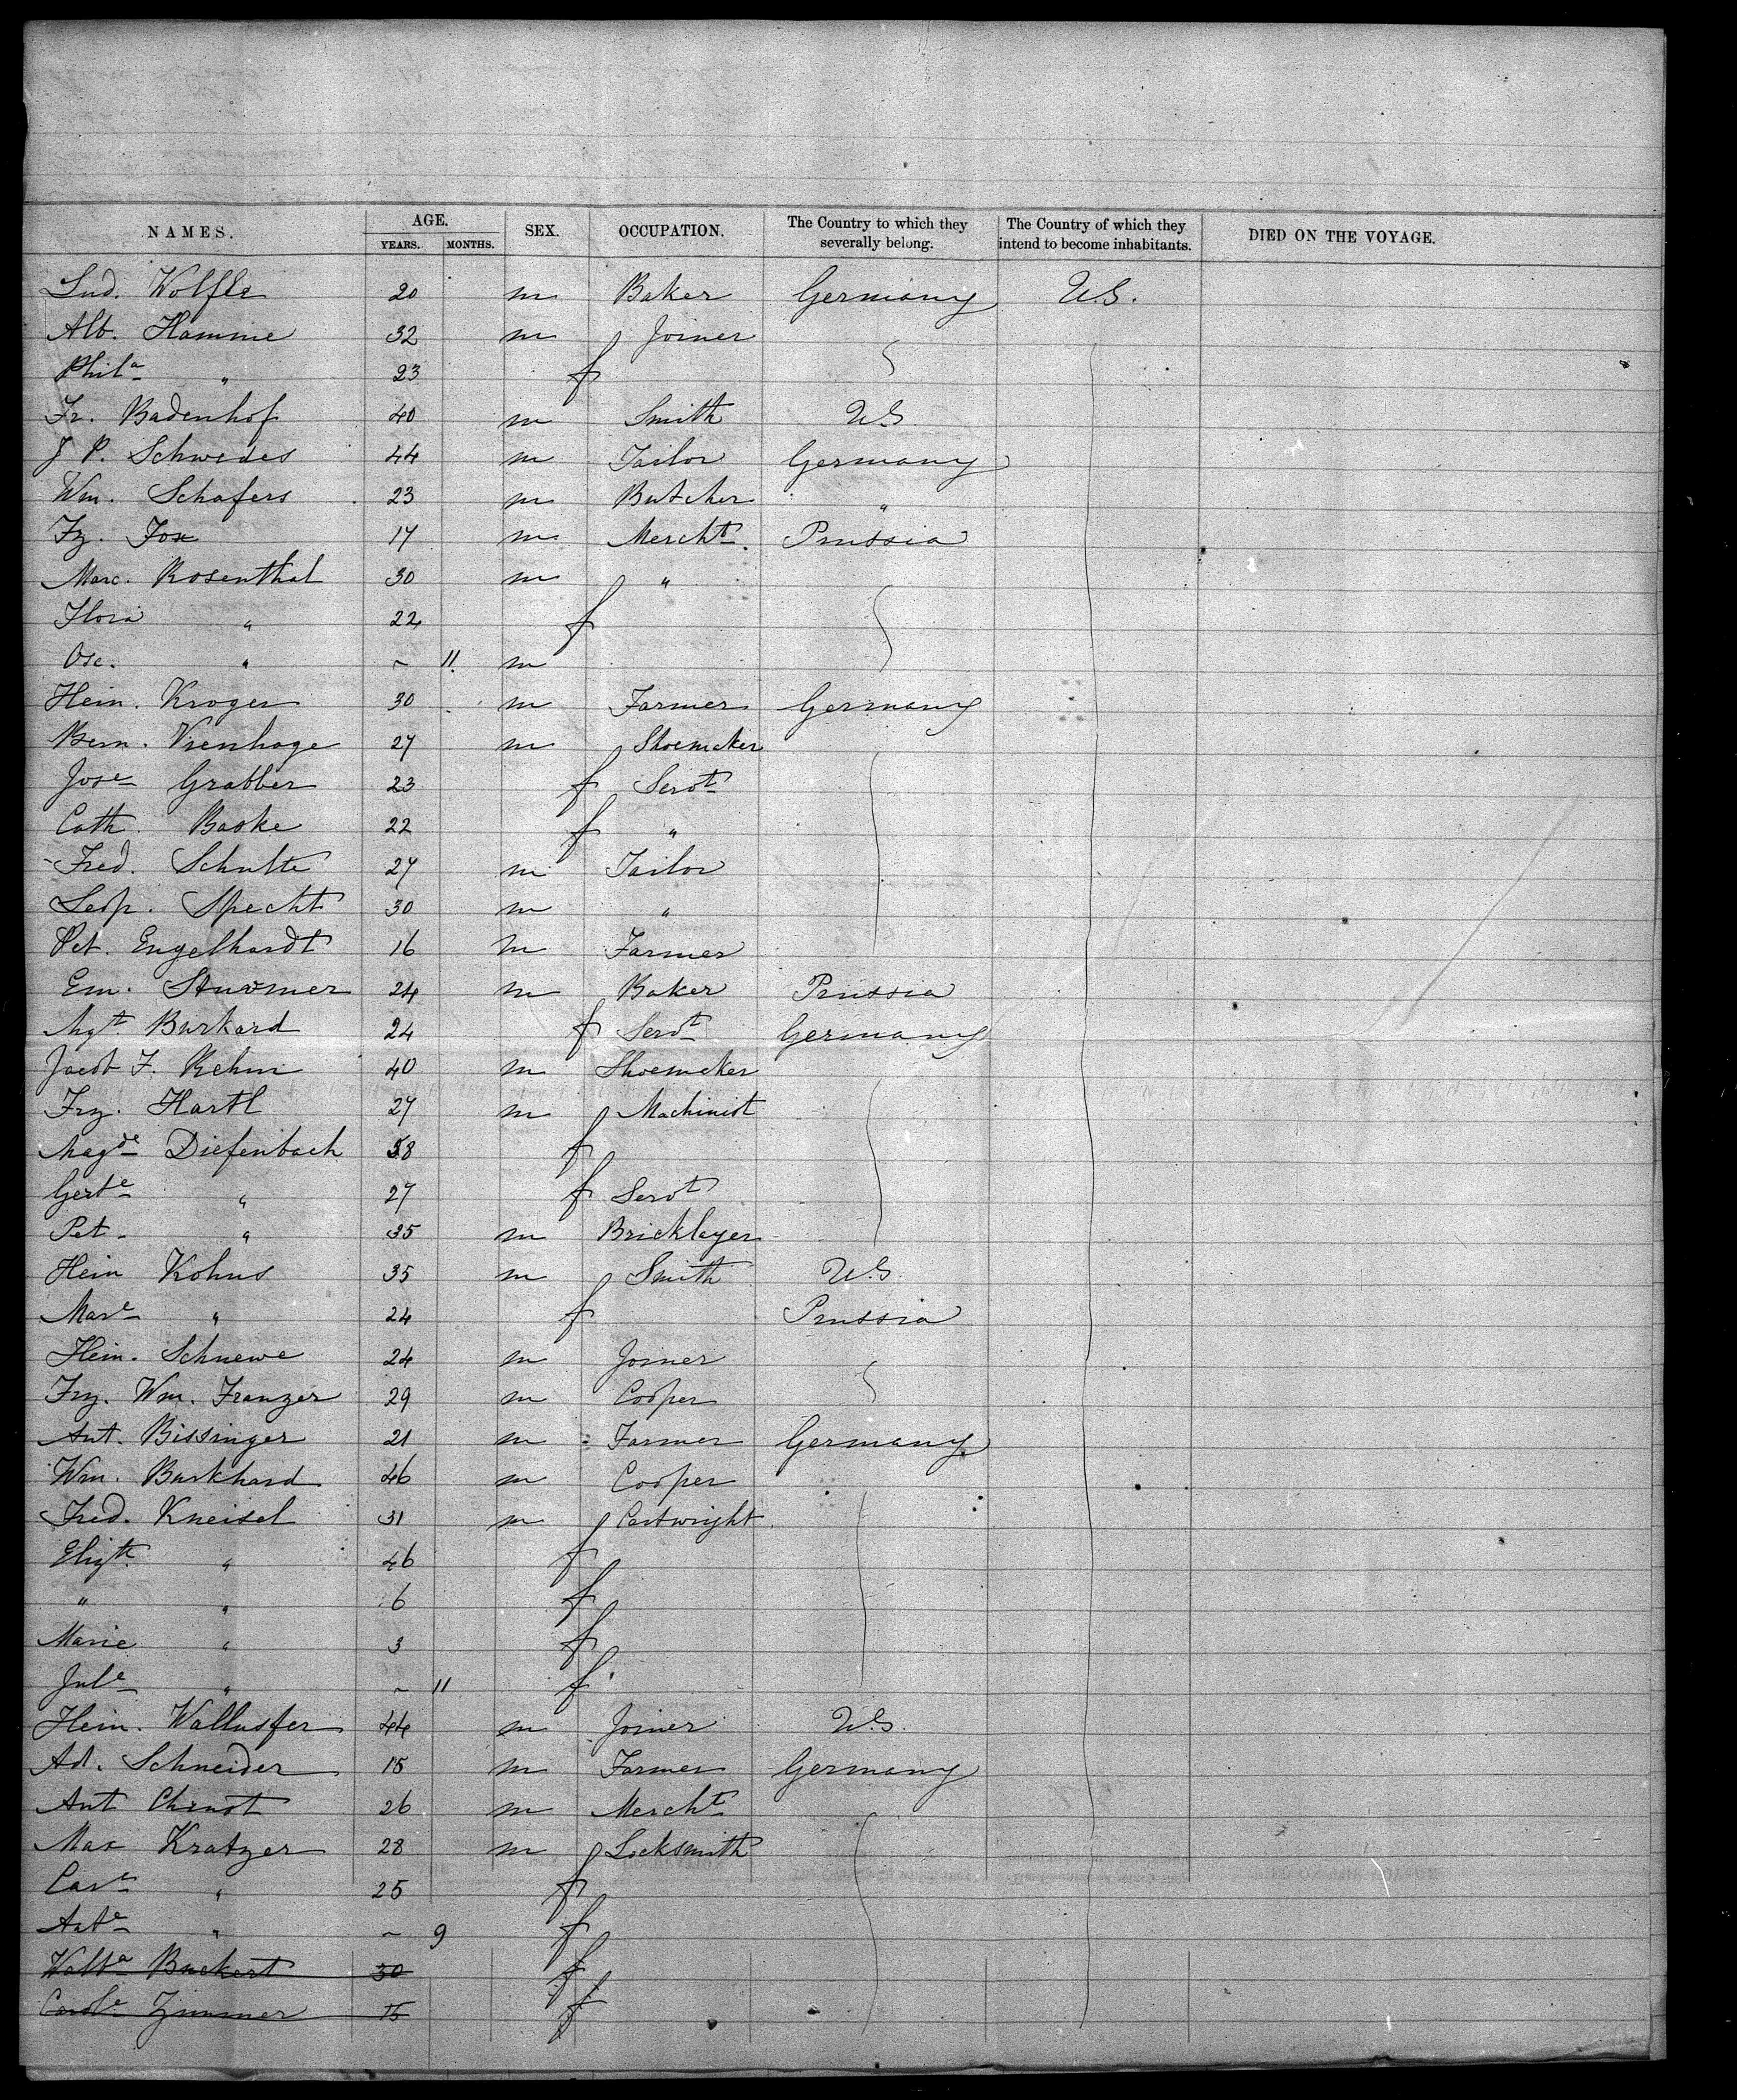 NAMES. AGE. YEARS. MONTHS. SEX. OCCUPATION. The Country to which they severally belong. The Country of which they intend to become inhabitants. DIED ON THE VOYAGE.
Lud. Wolfle 20 m Baker Germany U.S.
Alb. Hamme 32 m Joiner
Phila " 23 f
Fr. Badenhof 40 m Smith U.S
J P. Schwedes 44 m Tailor Germany
Wm. Schafers 23 m Butcher "
Fz. Fox 17 m Mercht. Prussia
Marc. Rosenthal 30 m "
Flora " 22 f
Osc. " ~ 11. m
Hein. Kroger 30 m Farmer Germany
Bern. Vienhage 27 m Shoemaker
Jose Grabber 23 f Servt
Cath. Baske 22 f "
Fred. Schulte 27 m Tailor
Leop. Specht 30 m "
Pet. Engelhardt 16 m Farmer
Em. Sturmer 24 m Baker Prussia
Mgt Burkard 24 f Servt Germany
Jacob F. Rehm 40 m Shoemaker
Frz. Hartl 27 m Machinist
Magde Diefenbach 58 f
Gerte " 27 f Servt
Pet. " 35 m Bricklayer
Hein Kohns 35 m Smith U.S
Mare " 24 f Prussia
Hein. Schnewe 24 m Joiner
Frz. Wm. Franzer 29 m Cooper
Ant. Bissinger 21 m Farmer Germany
Wm. Burkhard 46 m Cooper
Fred. Kneisel 31 m Cartwright
Elizth " 46 f
" " 6 f
Marie " 3 f
Jule " ~ 11 f
Hein. Wallusfer 44 m Joiner U.S.
Ad. Schneider 15 m Farmer Germany
Ant Chenot 26 m Mercht
Max Kratzer 28 m Locksmith
Care " 25 f
Ante " ~ 9 f
Walba Buckert 30 f
Carole Zimmer 15 f